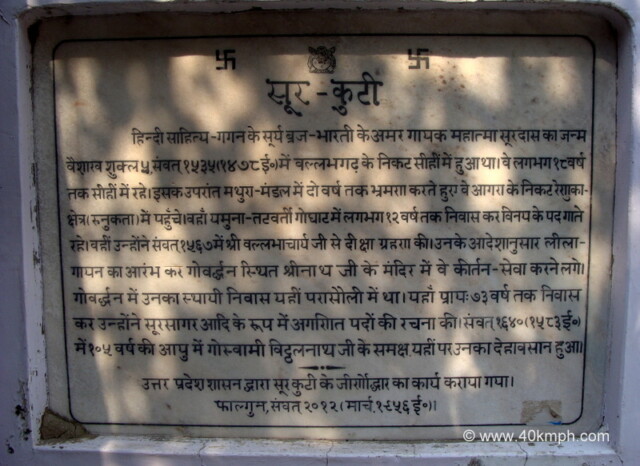 सूर - कुटी
हिन्दी साहित्य-गगन के सूर्य ब्रज-भारती के अमर गायक महात्मा सूरदास का जन्म
वैशाख शुक्ल ५, संवत् १५३५(१४७८ ई०) में वल्लभगढ़ के निकट सीहीं में हुआ था। वे लगभग १८ वर्ष
तक सीहीं में रहे। इसके उपरांत मथुरा-मंडल में दो वर्ष तक भ्रमण करते हुए वे आगरा के निकट रेणुका-
क्षेत्र (रुनुकता) में पहुँचे। वहाँ यमुना-तटवर्ती गोघाट में लगभग १२ वर्ष तक निवास कर विनय के पद गाते
रहे। वहीं उन्होंने संवत् १५६७ में श्री वल्लभाचार्य जी से दीक्षा ग्रहण की। उनके आदेशानुसार लीला-
गायन का आरंभ कर गोवर्द्धन स्थित श्रीनाथ जी के मंदिर में वे कीर्तन-सेवा करने लगे।
गोवर्द्धन में उनका स्थायी निवास यहीं परासौली में था। यहाँ प्रायः ७३ वर्ष तक निवास
कर उन्होंने सूरसागर आदि के रूप में अगणित पदों की रचना की। संवत् १६४०(१५८३ ई०)
में १०५ वर्ष की आयु में गोस्वामी विट्ठलनाथ जी के समक्ष यहीं पर उनका देहावसान हुआ।
उत्तर प्रदेश शासन द्वारा सूरकुटी के जीर्णोद्धार का कार्य कराया गया।
फाल्गुन, संवत २०१२ (मार्च, १९५६ ई०)।
© www.40kmph.com